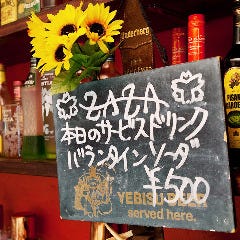 ZAZA
本日のサービスドリンク
バランタインソーダ
¥500
YEBISU BEER
served here.